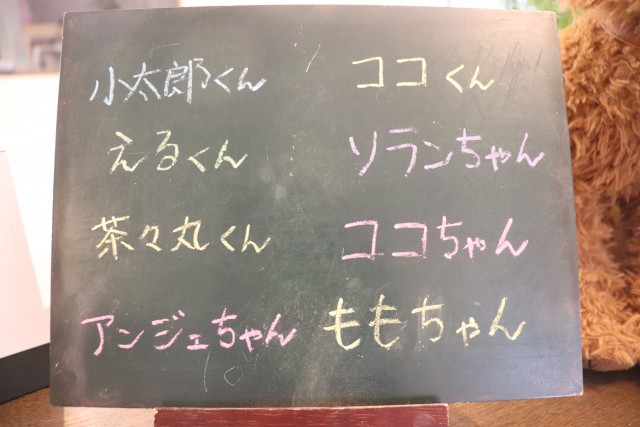 小太郎くん
えるくん
茶々丸くん
アンジェちゃん
ココくん
ソランちゃん
ココちゃん
ももちゃん